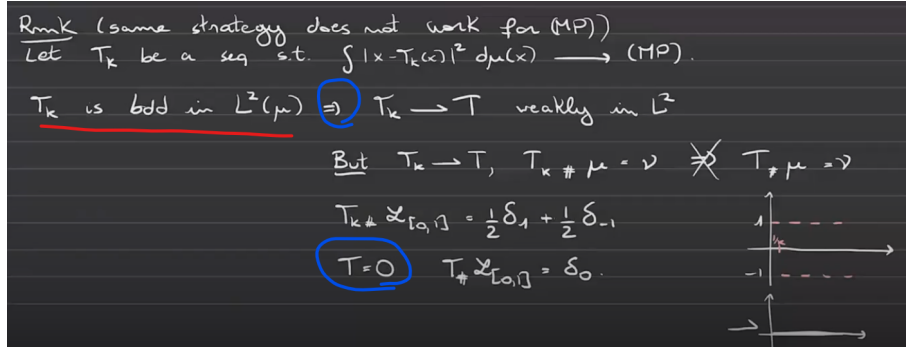 Rmk (same strategy does not work for (MP))
Let T_k be a seq s.t. ∫ |x-T_k(x)|² dμ(x) ⟶ (MP).
T_k is bdd in L²(μ) ⇒ T_k ⟶ T weakly in L²
But T_k ⟶ T, T_k # μ = ν ⇏ T_# μ = ν
T_k# ℒ_[0,1] = ½ δ_1 + ½ δ_-1
T=0 T_# ℒ_[0,1] = δ_0.
1
1/k
-1